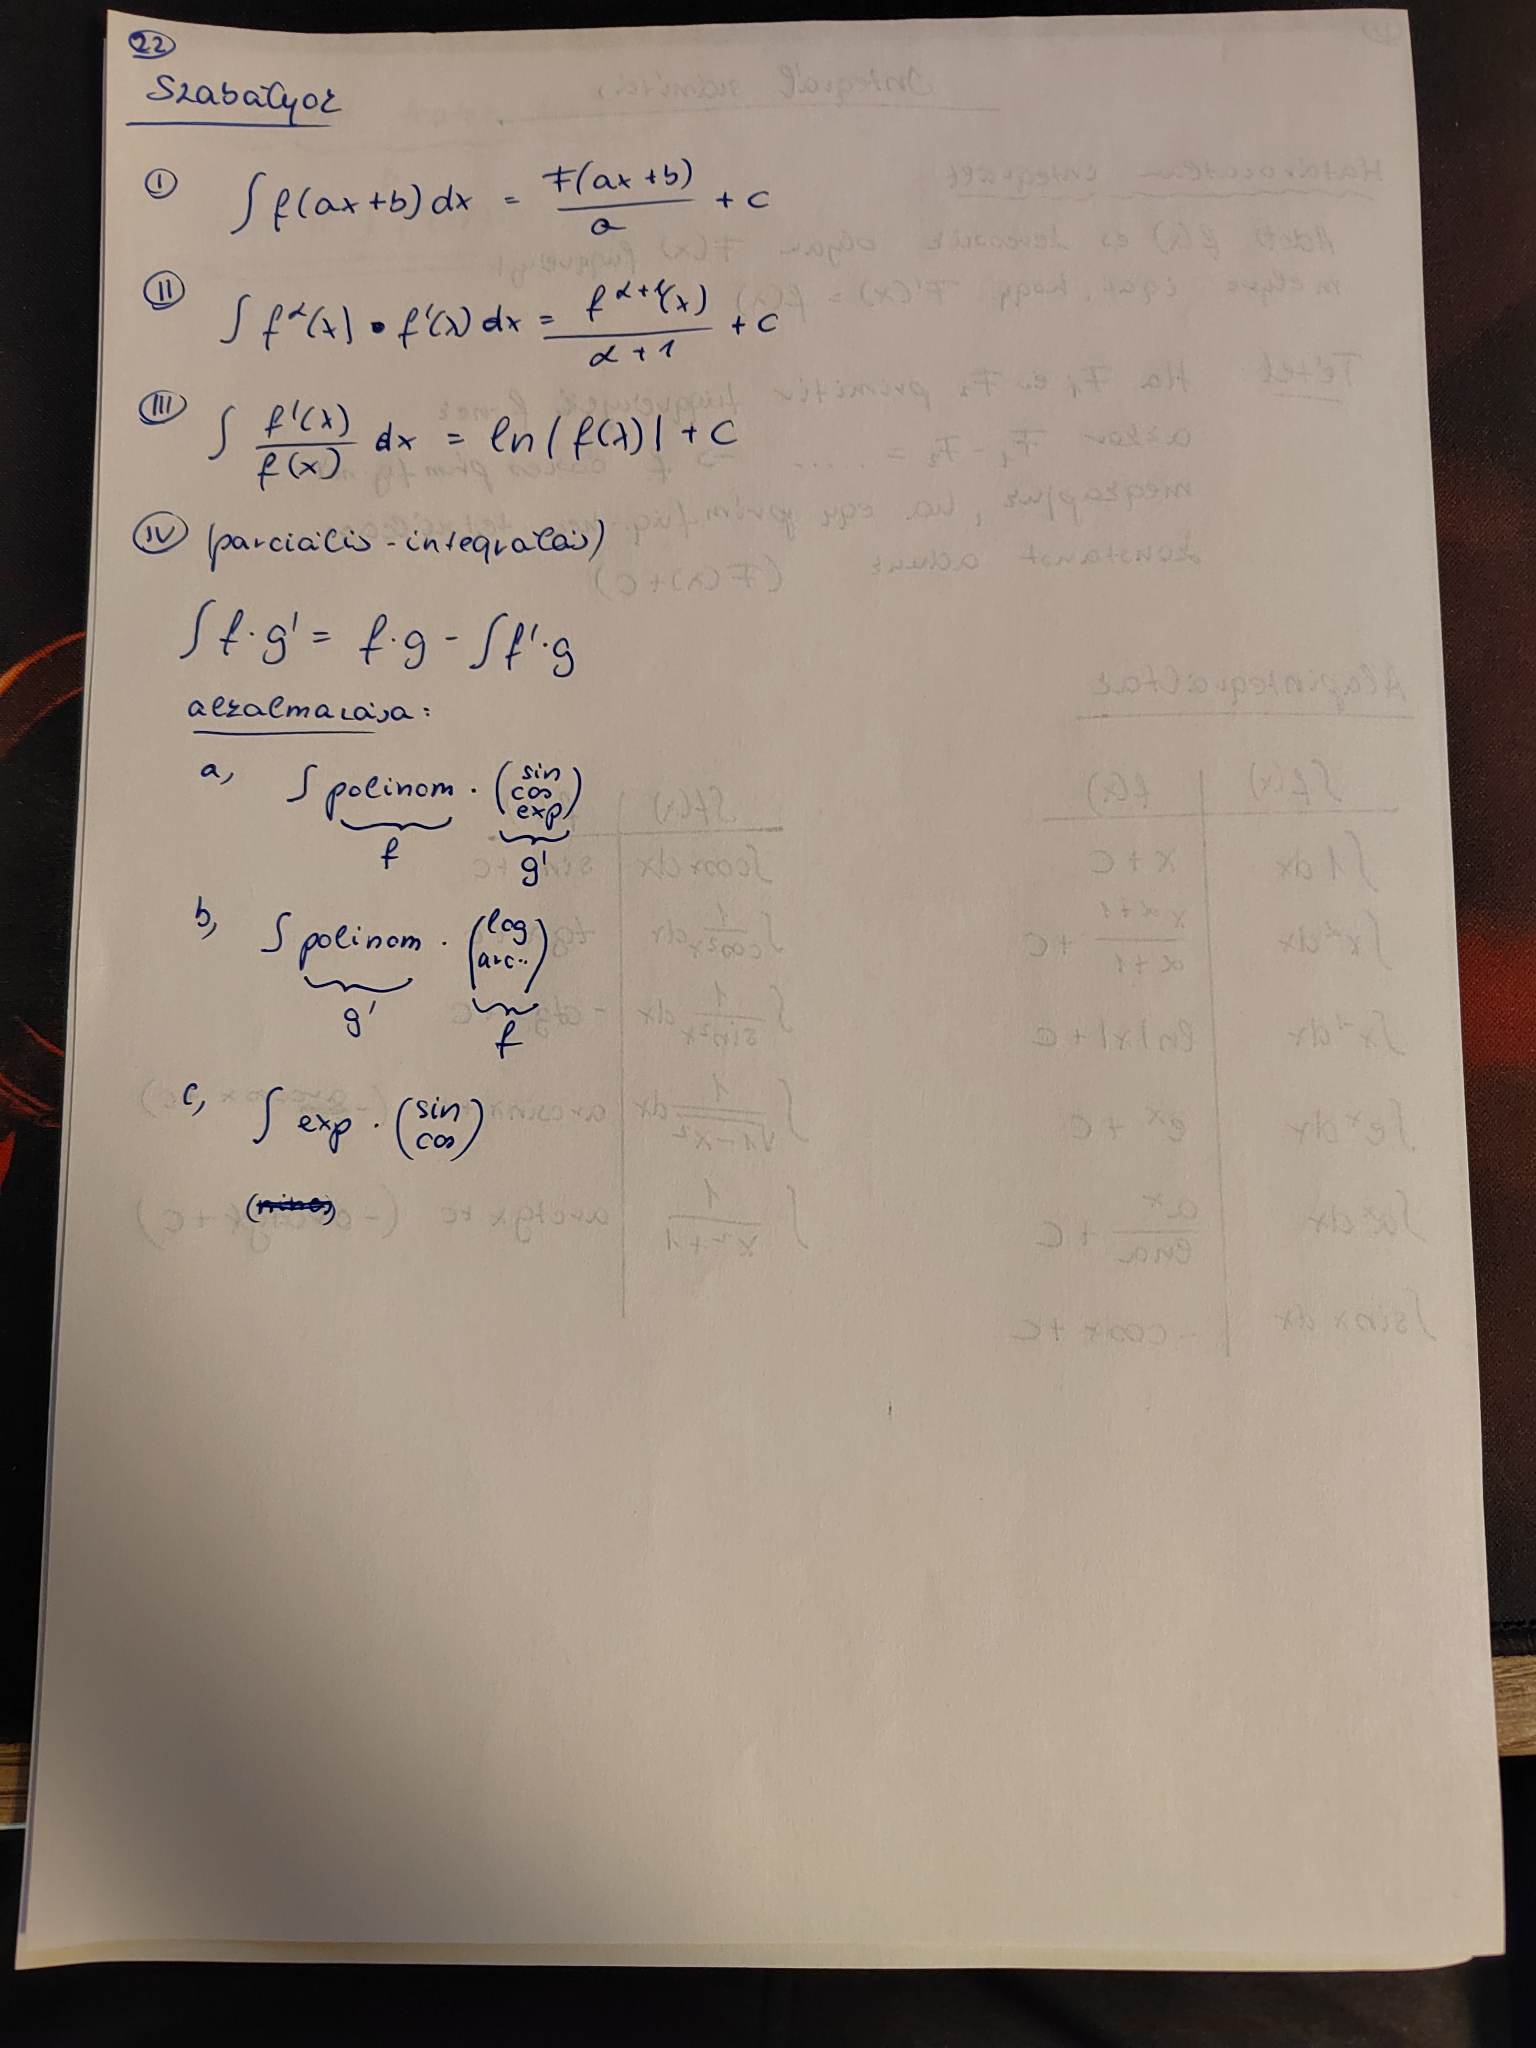 22
Szabályok
I ∫ f(ax+b) dx = F(ax+b)/a + c
II ∫ f^α(x) • f'(x) dx = f^(α+1)(x)/(α+1) + c
III ∫ f'(x)/f(x) dx = ln|f(x)| + C
IV (parciális-integrálás)
∫ f·g' = f·g - ∫ f'·g
alkalmazása:
a, ∫ polinom · (sin cos exp)
f g'
b, ∫ polinom · (log arc..)
g' f
c, ∫ exp · (sin cos)